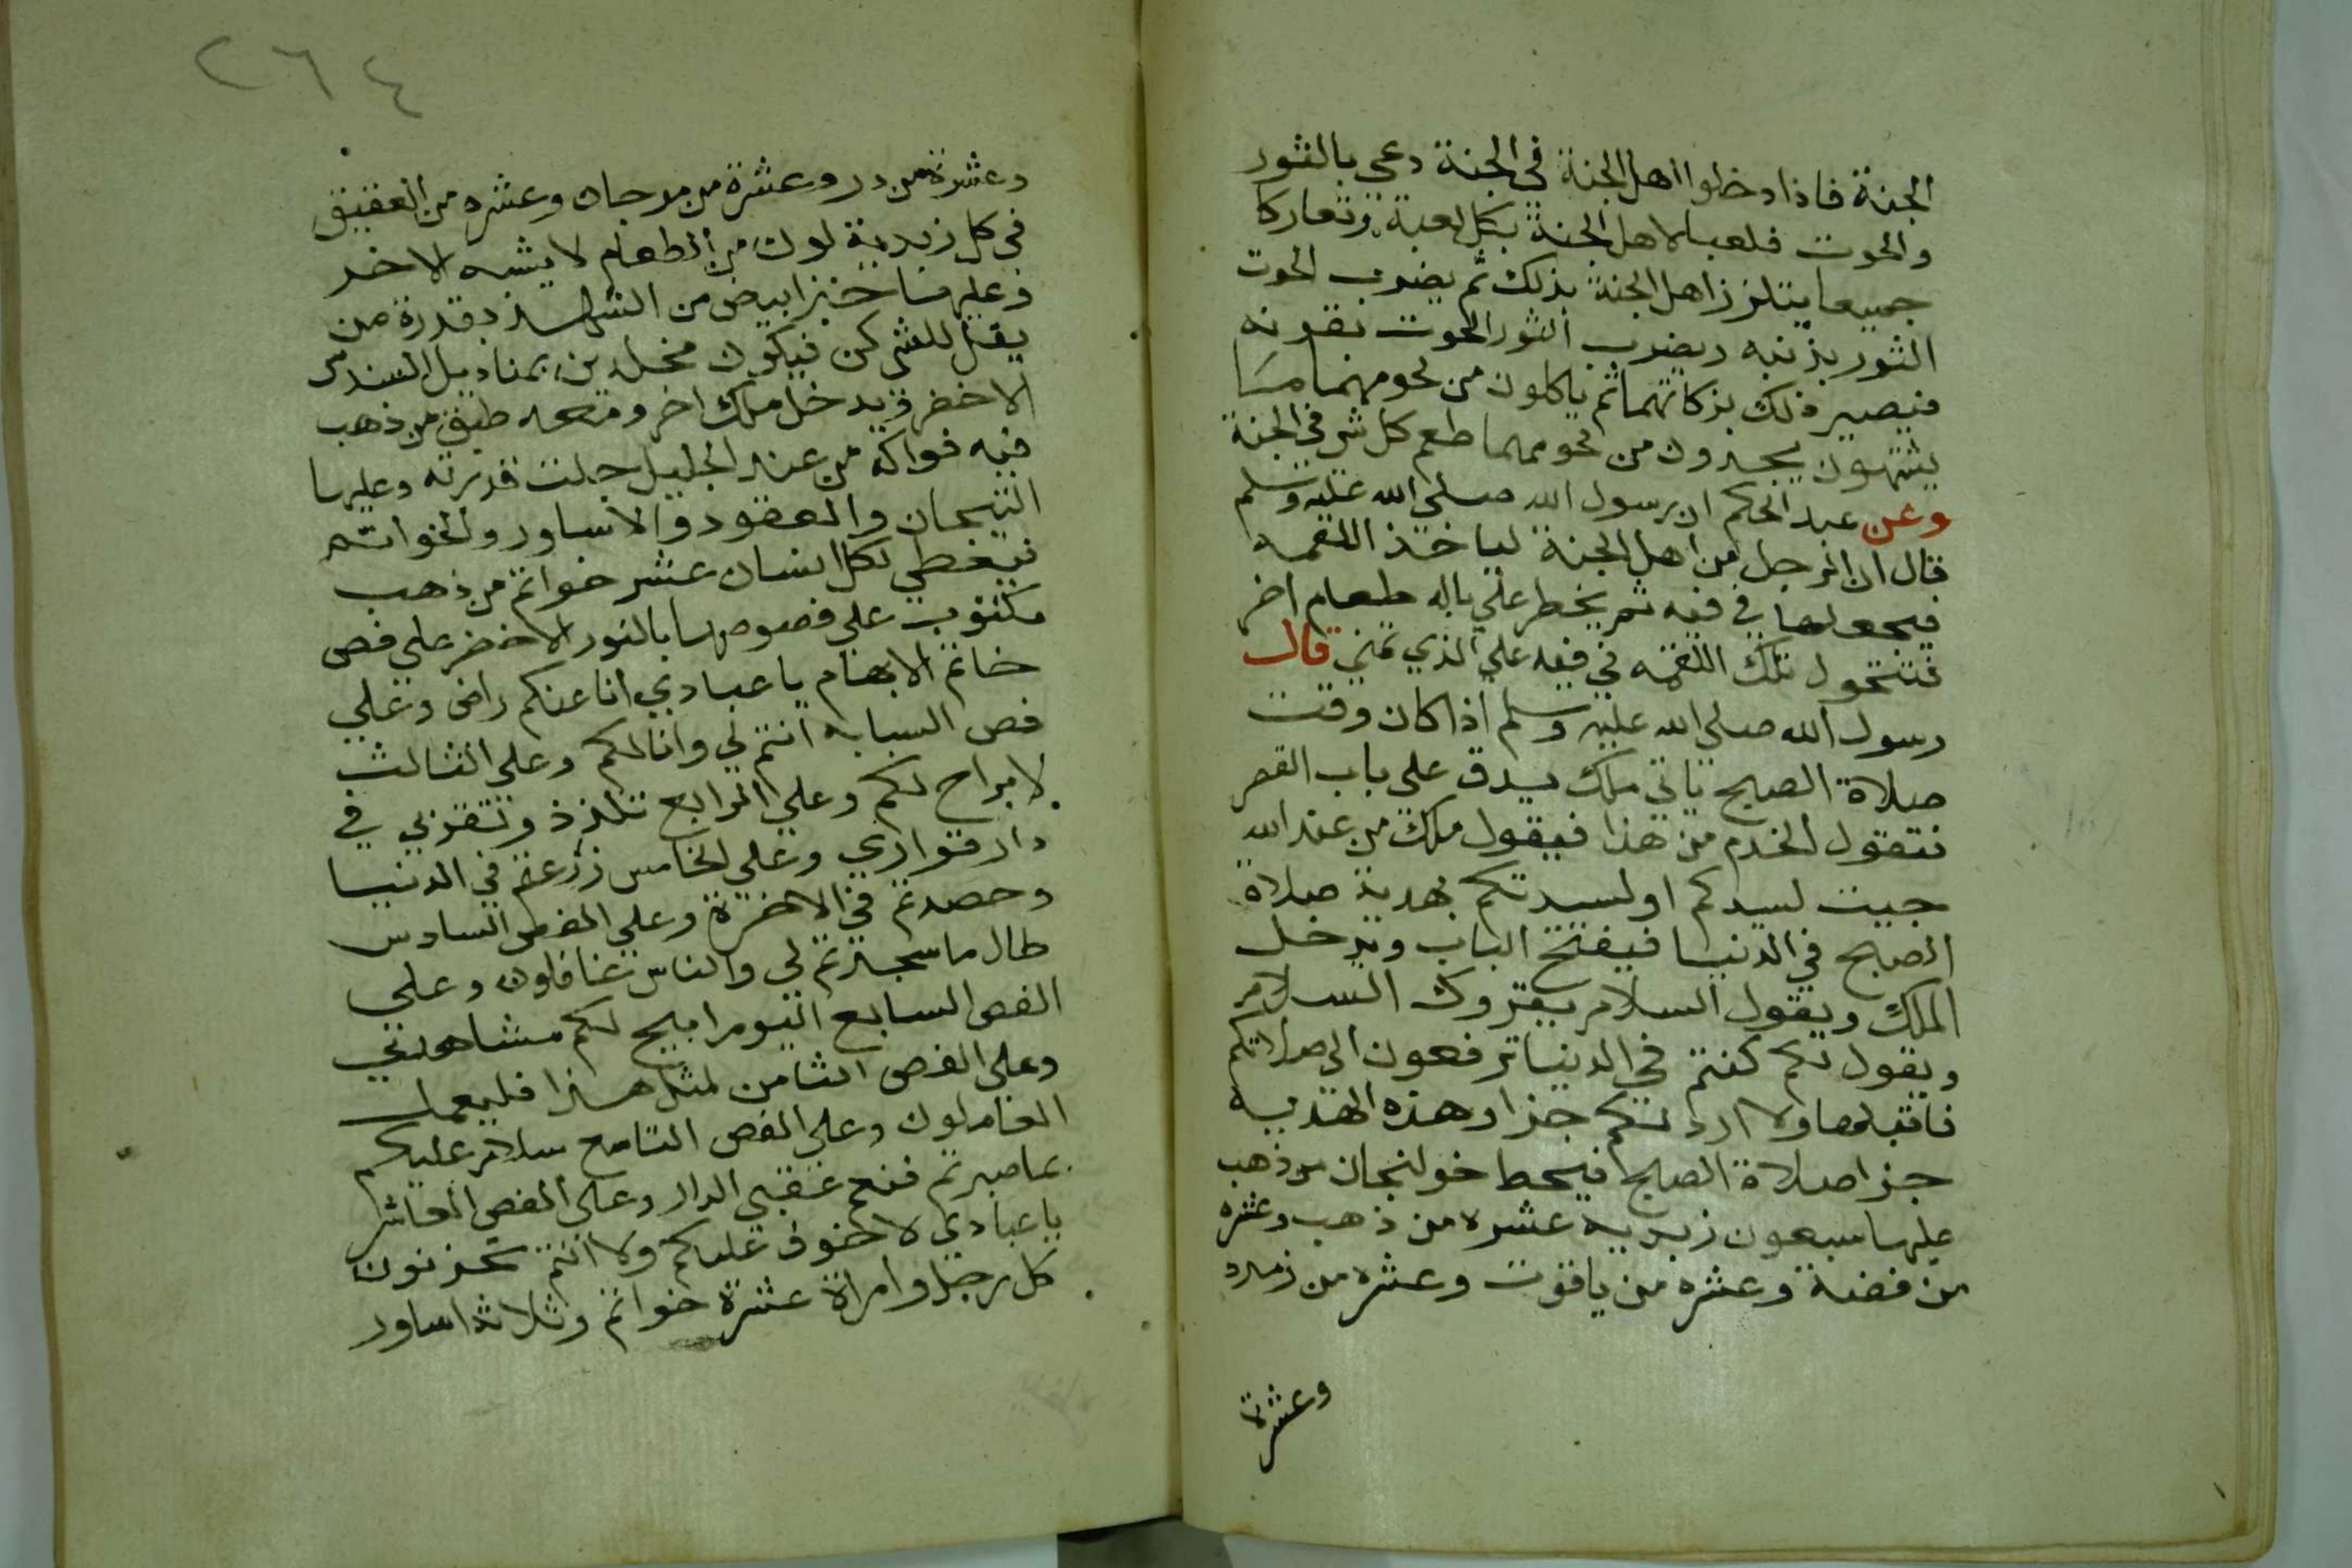 الجنة فاذا دخلوا اهل الجنة في الجنة دعي بالثور
والحوت فلعبا لاهل الجنة بكل لعبة وتعاركا
جميعا يتلذذ اهل الجنة بذلك ثم يضرب الحوت
الثور بذنبه ويضرب الثور الحوت بقرنه
فيصير ذلك بزكاتهما ثم ياكلون من لحومهما ما
يشتهون يجدون من لحومهما طعم كل شي في الجنة
وعن عبد الحكم ان رسول الله صلى الله عليه وسلم
قال ان الرجل من اهل الجنة لياخذ اللقمه
فيجعلها في فيه ثم يخطر علي باله طعام اخر
فتتحول تلك اللقمه في فيه علي الذي تمني قال
رسول الله صلي الله عليه وسلم اذا كان وقت
صلاة الصبح ياتي ملك يدق على باب القصر
فتقول الخدم من هذا فيقول ملك من عند الله
جيت لسيدكم او لسيدتكم بهدية صلاة
الصبح في الدنيا فيفتح الباب ويدخل
الملك ويقول السلام يقروك السلام
ويقول لكم كنتم في الدنيا ترفعون الي صلاتكم
فاقبلها ولا ارد لكم جزا وهذه الهديه
جزا صلاة الصبح فيحط خولنجان من ذهب
عليها سبعون زبديه عشره من ذهب وعشره
من فضة وعشره من ياقوت وعشره من زمرد
وعشرة
٢٦٤
وعشرة من در وعشرة من مرجان وعشره من العقيق
في كل زبدية لون من الطعام لا يشبه الاخر
وعليها خبز ابيض من الثلج بقدرة من
يقل للشي كن فيكون مخللين بمناديل السندس
الاخضر ويدخل ملك اخر ومعه طبق من ذهب
فيه فواكه من عند الجليل جلت قدرته وعليها
التيجان والعقود والاساور والخواتم
فيعطي لكل انسان عشر خواتم من ذهب
مكتوب على فصوصها بالنور الاخضر علي فص
خاتم الابهام يا عبادي انا عنكم راض وعلي
فص السبابه انتم لي وانا لكم وعلى الثالث
لا براح لكم وعلي الرابع تلذذ وتقربي في
دار قراري وعلي الخامس زرعتم في الدنيا
وحصدتم في الاخرة وعلي الفص السادس
طال ما سجدتم لي والناس غافلون وعلي
الفص السابع اليوم ابيح لكم مشاهدتي
وعلى الفص الثامن لمثل هذا فليعمل
العاملون وعلى الفص التاسع سلام عليكم
بما صبرتم فنعم عقبي الدار وعلى الفص العاشر
يا عبادي لا خوف عليكم ولا انتم تحزنون
كل رجل وامراة عشرة خواتم وثلاثة اساور